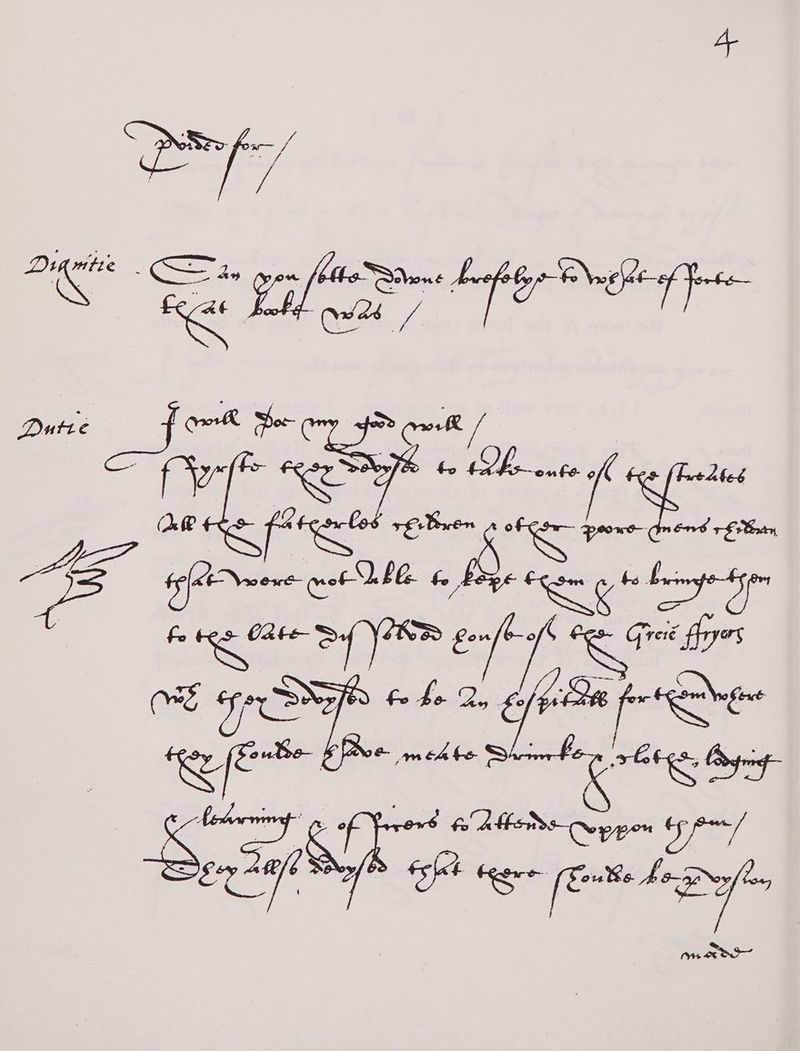 4
provided for /
Dignitie Can you sette downe brefelye to what effecte
that booke was /
Dutie I will doe my good will /
Fyrste they devysed to take oute of the streates
All the fatherles children & other poore mens children
that were not Able to kepe them & to bringe them
to the late dissolved house of the Greie ffryers
wch they devysed to be An hospitall for them where
they shoulde have meate drincke & clothes, lodging
& learning & officers to Attende uppon them /
They Allso devysed that there shoulde be provysion
made